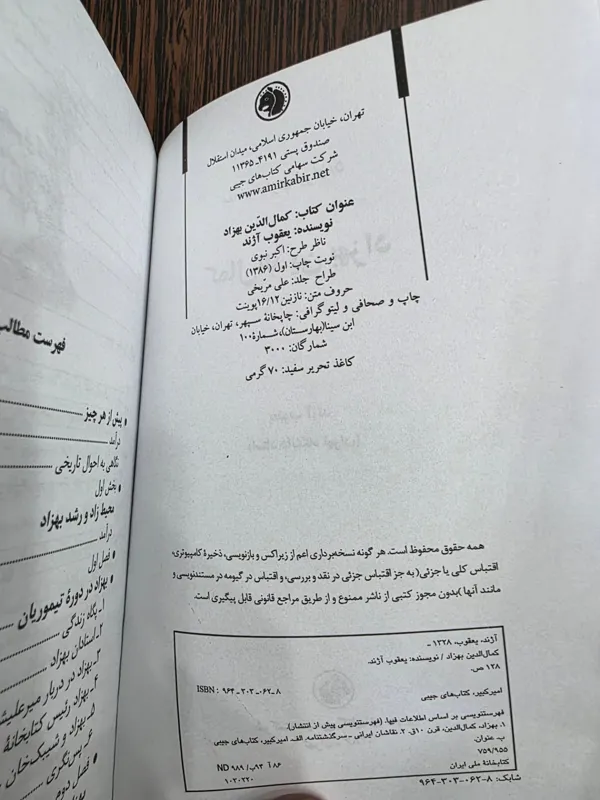 تهران، خیابان جمهوری اسلامی، میدان استقلال
صندوق پستی ۴۱۹۱ـ ۱۱۳۶۵
شرکت سهامی کتاب‌های جیبی
www.amirkabir.net
عنوان کتاب: کمال‌الدّین بهزاد
نویسنده: یعقوب آژند
ناظر طرح: اکبر نبوی
نوبت چاپ: اول (۱۳۸۶)
طراح جلد: علی مریخی
حروف متن: نازنین ۱۶/۱۲پوینت
چاپ و صحافی و لیتو گرافی: چاپخانهٔ سپهر، تهران، خیابان
ابن سینا(بهارستان)، شمارهٔ۱۰۰
شمارگان: ۳۰۰۰
کاغذ تحریر سفید: ۷۰ گرمی
همه حقوق محفوظ است. هر گونه نسخه‌برداری اعم از زیراکس و بازنویسی، ذخیرهٔ کامپیوتری،
اقتباس کلی یا جزئی( به جز اقتباس جزئی در نقد و بررسی، و اقتباس در گیومه در مستندنویسی و
مانند آنها )بدون مجوز کتبی از ناشر ممنوع و از طریق مراجع قانونی قابل پیگیری است.
آژند، یعقوب، ۱۳۲۸ ـ
کمال‌الدین بهزاد / نویسنده: یعقوب آژند.
۱۲۸ ص.
ISBN : ۹۶۴-۳۰۳-۰۶۲-۸
امیرکبیر، کتاب‌های جیبی
فهرستنویسی بر اساس اطلاعات فیپا. (فهرستنویسی پیش از انتشار).
۱. بهزاد، کمال‌الدین، قرن ۱۰ق. ۲. نقاشان ایرانی ـ سرگذشتنامه. الف. امیرکبیر، کتاب‌های جیبی
ب. عنوان.
۷۵۹/۹۵۵
ND ۹۸۹ /ب۹۳ آ ۸۶
کتابخانهٔ ملی ایران
۱۰۲۰۲۲۰
شابک: ۸-۰۶۲-۳۰۳-۹۶۴
فهرست مطالب
پیش از هر چیز
درآمد
نگاهی به احوال تاریخی
بخش اول
محیط زاد و رشد بهزاد
درآمد
فصل اول
بهزاد در دورهٔ تیموریان
۱ـ پگاه زندگی
۲ـ استادان بهزاد
۳ـ بهزاد در دربار میرعلیش
۴ـ بهزاد رئیس کتابخانهٔ
۵ـ بهزاد و شیبک‌خان
۶ـ پس‌نگری
فصل دوم